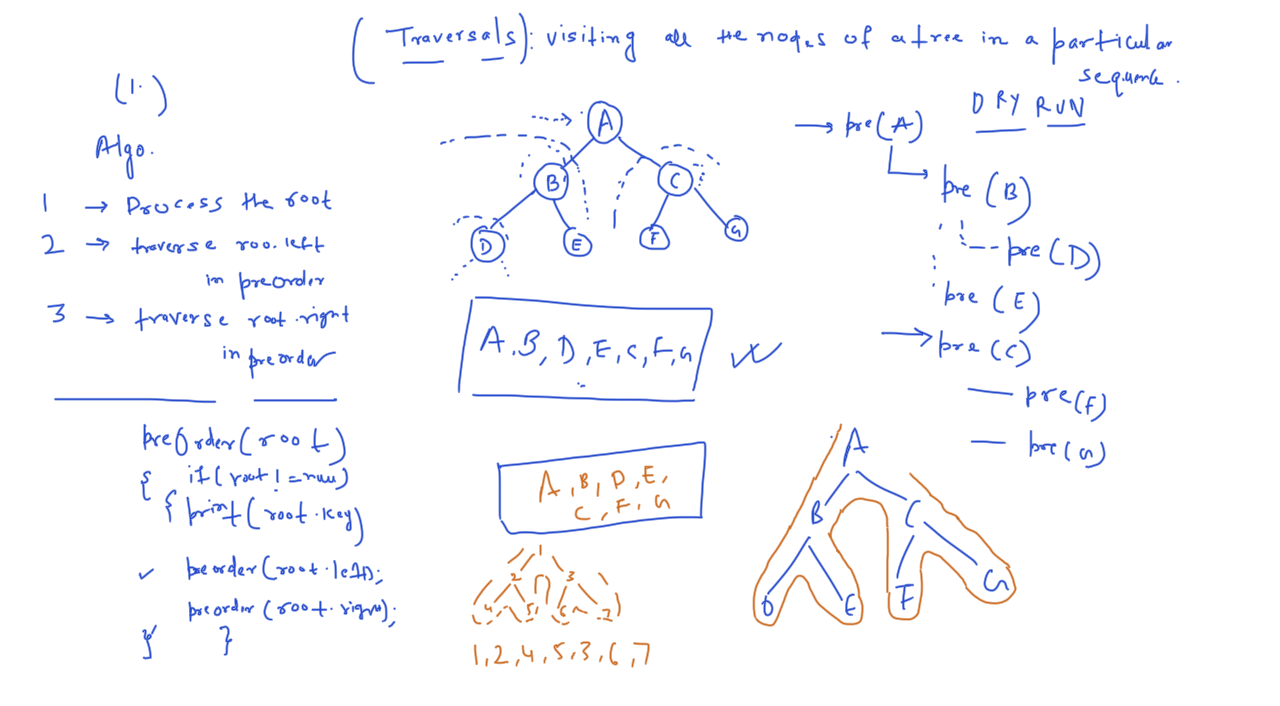 (Traversals): visiting all the nodes of a tree in a particular
sequence.
(1.)
Algo.
1 → Process the root
2 → traverse roo.left
in preorder
3 → traverse root.right
in preorder
preOrder(root)
{ if(root != null)
{ print(root.key)
✓ preorder(root.left);
preorder(root.right);
} }
A
B C
D E F G
A, B, D, E, C, F, G
A, B, D, E,
C, F, G
1
2 3
4 5 6 7
1, 2, 4, 5, 3, 6, 7
DRY RUN
→ pre(A)
pre(B)
pre(D)
pre(E)
→ pre(C)
— pre(F)
— pre(G)
A
B C
D E F G